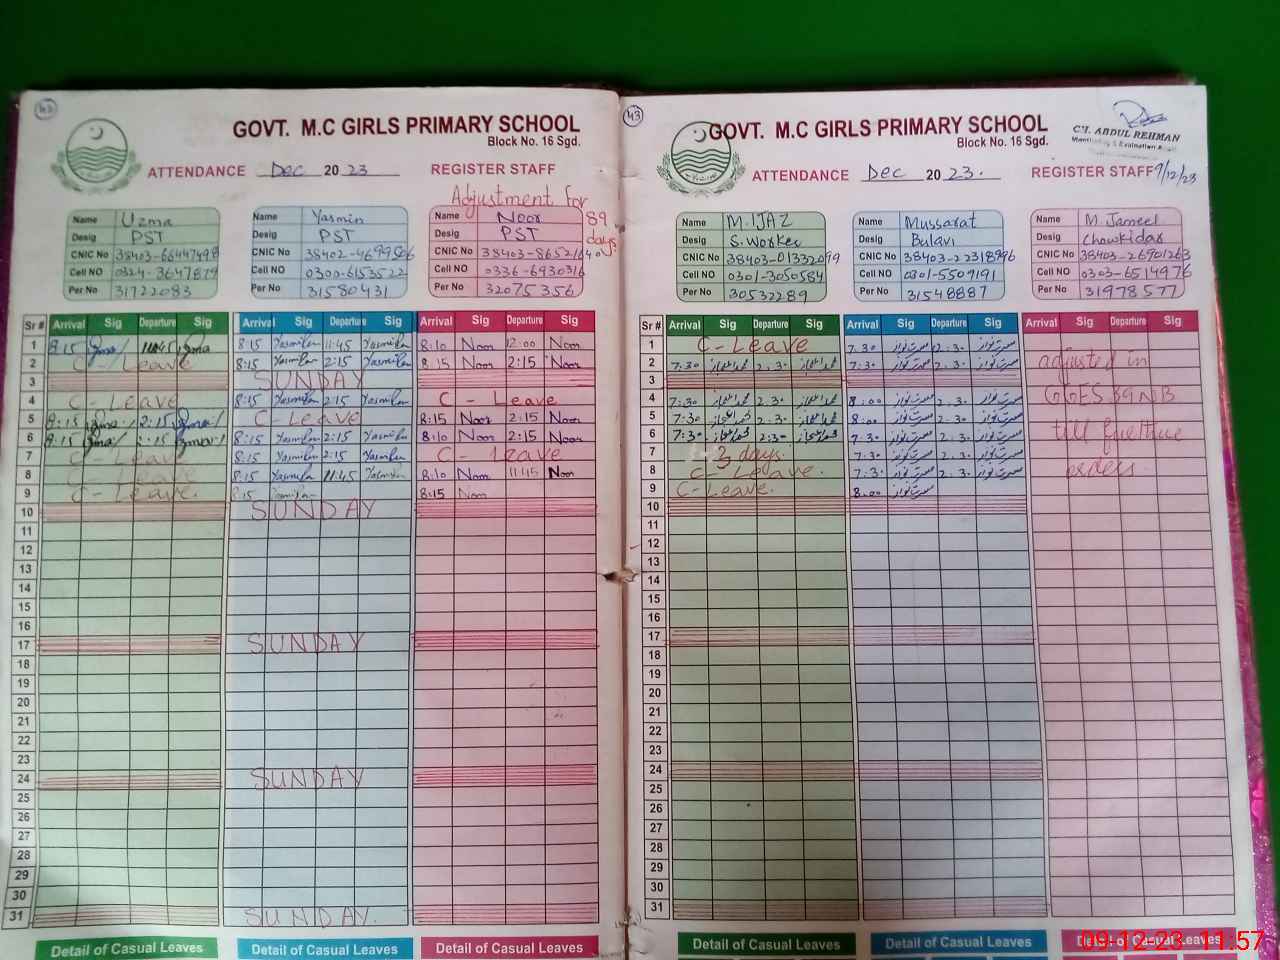 42
GOVT. M.C GIRLS PRIMARY SCHOOL
Block No. 16 Sgd.
ATTENDANCE Dec 2023 REGISTER STAFF
Adjustment for 89 days
Name Uzma
Desig PST
CNIC No 38403-6644749-8
Cell NO 0324-3647879
Per No 31722083
Name Yasmin
Desig PST
CNIC No
Cell NO 0300-6153522
Per No 31580431
Name Noor
Desig PST
CNIC No
Cell NO 0336-6930316
Per No 32075356
Sr # Arrival Sig Departure Sig Arrival Sig Departure Sig Arrival Sig Departure Sig
1 8:15 Uzma 11:45 Uzma 8:15 Yasmin 11:45 Yasmin 8:10 Noor 12:00 Noor
2 C-Leave 8:15 Yasmin 2:15 Yasmin 8:15 Noor 2:15 Noor
3 SUNDAY
4 C-Leave 8:15 Yasmin 2:15 Yasmin C-Leave
5 8:15 Uzma 2:15 Uzma C-Leave 8:15 Noor 2:15 Noor
6 8:15 Uzma 2:15 Uzma 8:15 Yasmin 2:15 Yasmin 8:10 Noor 2:15 Noor
7 C-Leave 8:15 Yasmin 2:15 Yasmin C-Leave
8 C-Leave 8:15 Yasmin 11:45 Yasmin 8:10 Noor 11:45 Noor
9 C-Leave. 8:15 Yasmin 8:15 Noor
10 SUNDAY
11
12
13
14
15
16
17 SUNDAY
18
19
20
21
22
23
24 SUNDAY
25
26
27
28
29
30
31 SUNDAY.
Detail of Casual Leaves Detail of Casual Leaves Detail of Casual Leaves
43
GOVT. M.C GIRLS PRIMARY SCHOOL
Block No. 16 Sgd.
C.T. ABDUL REHMAN
9/12/23
ATTENDANCE Dec 2023. REGISTER STAFF
Name M.IJAZ
Desig S.Worker
CNIC No 38403-0133209-9
Cell NO 0301-3050584
Per No 30532289
Name Mussarat
Desig Bulavi
CNIC No 38403-2231899-6
Cell NO 0301-5507191
Per No 31548887
Name M. Jameel
Desig Chowkidar
CNIC No 38403-2690126-3
Cell NO 0303-6514976
Per No 31978577
Sr # Arrival Sig Departure Sig Arrival Sig Departure Sig Arrival Sig Departure Sig
1 C-Leave 7:30 2:30
2 7:30 2:30 7:30 2:30 adjusted in
3
4 7:30 2:30 8:00 2:30 GGES 39NB
5 7:30 2:30 8:00 2:30
6 7:30 2:30 7:30 2:30 till
7 3 days. 7:30 2:30
8 C-Leave. 7:30 2:30
9 C-Leave. 8:00
10
11
12
13
14
15
16
17
18
19
20
21
22
23
24
25
26
27
28
29
30
31
Detail of Casual Leaves Detail of Casual Leaves Detail of Casual Leaves
09-12-23 11:57